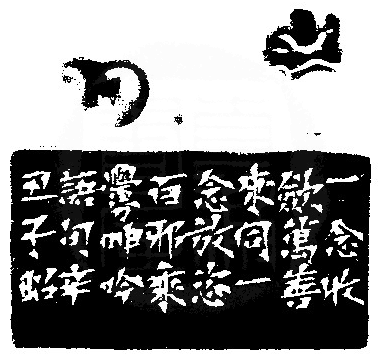 一念收
斂萬善
來同一
念放恣
百邪乘
釁呻吟
語句辛
丑子